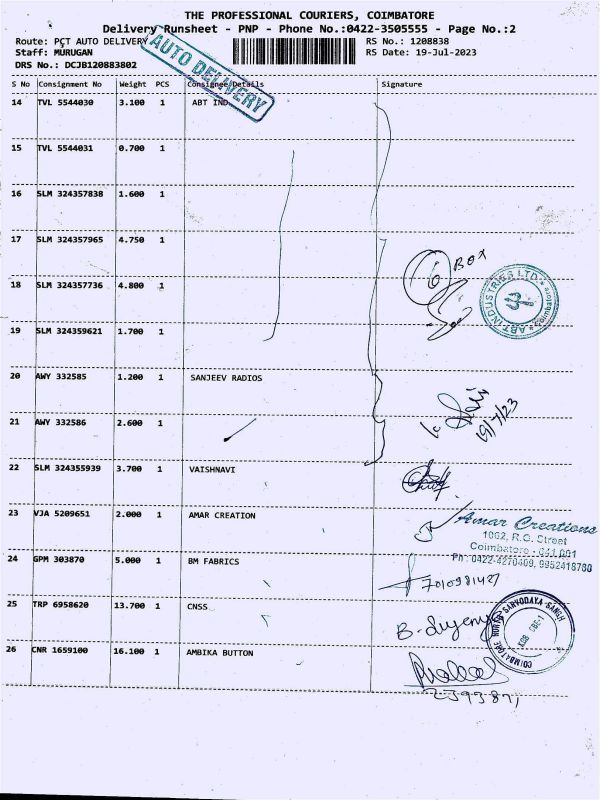 THE PROFESSIONAL COURIERS, COIMBATORE
Delivery Runsheet - PNP - Phone No.:0422-3505555 - Page No.:2
Route: PCT AUTO DELIVERY
RS No.: 1208838
Staff: MURUGAN
RS Date: 19-Jul-2023
DRS No.: DCJB120883802
AUTO DELIVERY
S No Consignment No Weight PCS Consignee Details Signature
14 TVL 5544030 3.100 1 ABT IND
15 TVL 5544031 0.700 1
16 SLM 324357838 1.600 1
17 SLM 324357965 4.750 1
6 BOX
ABT INDUSTRIES LTD. Coimbatore
18 SLM 324357736 4.800 1
19 SLM 324359621 1.700 1
20 AWY 332585 1.200 1 SANJEEV RADIOS
19/7/23
21 AWY 332586 2.600 1
22 SLM 324355939 3.700 1 VAISHNAVI
23 VJA 5209651 2.000 1 AMAR CREATION
Amar Creations
1062, R.G. Street
Coimbatore - 641 001
Ph: 0422-4270409, 9952418780
24 GPM 303870 5.000 1 BM FABRICS
7010981427
25 TRP 6958620 13.700 1 CNSS
COIMBATORE NORTH SARVODAYA SANGH
26 CNR 1659100 16.100 1 AMBIKA BUTTON